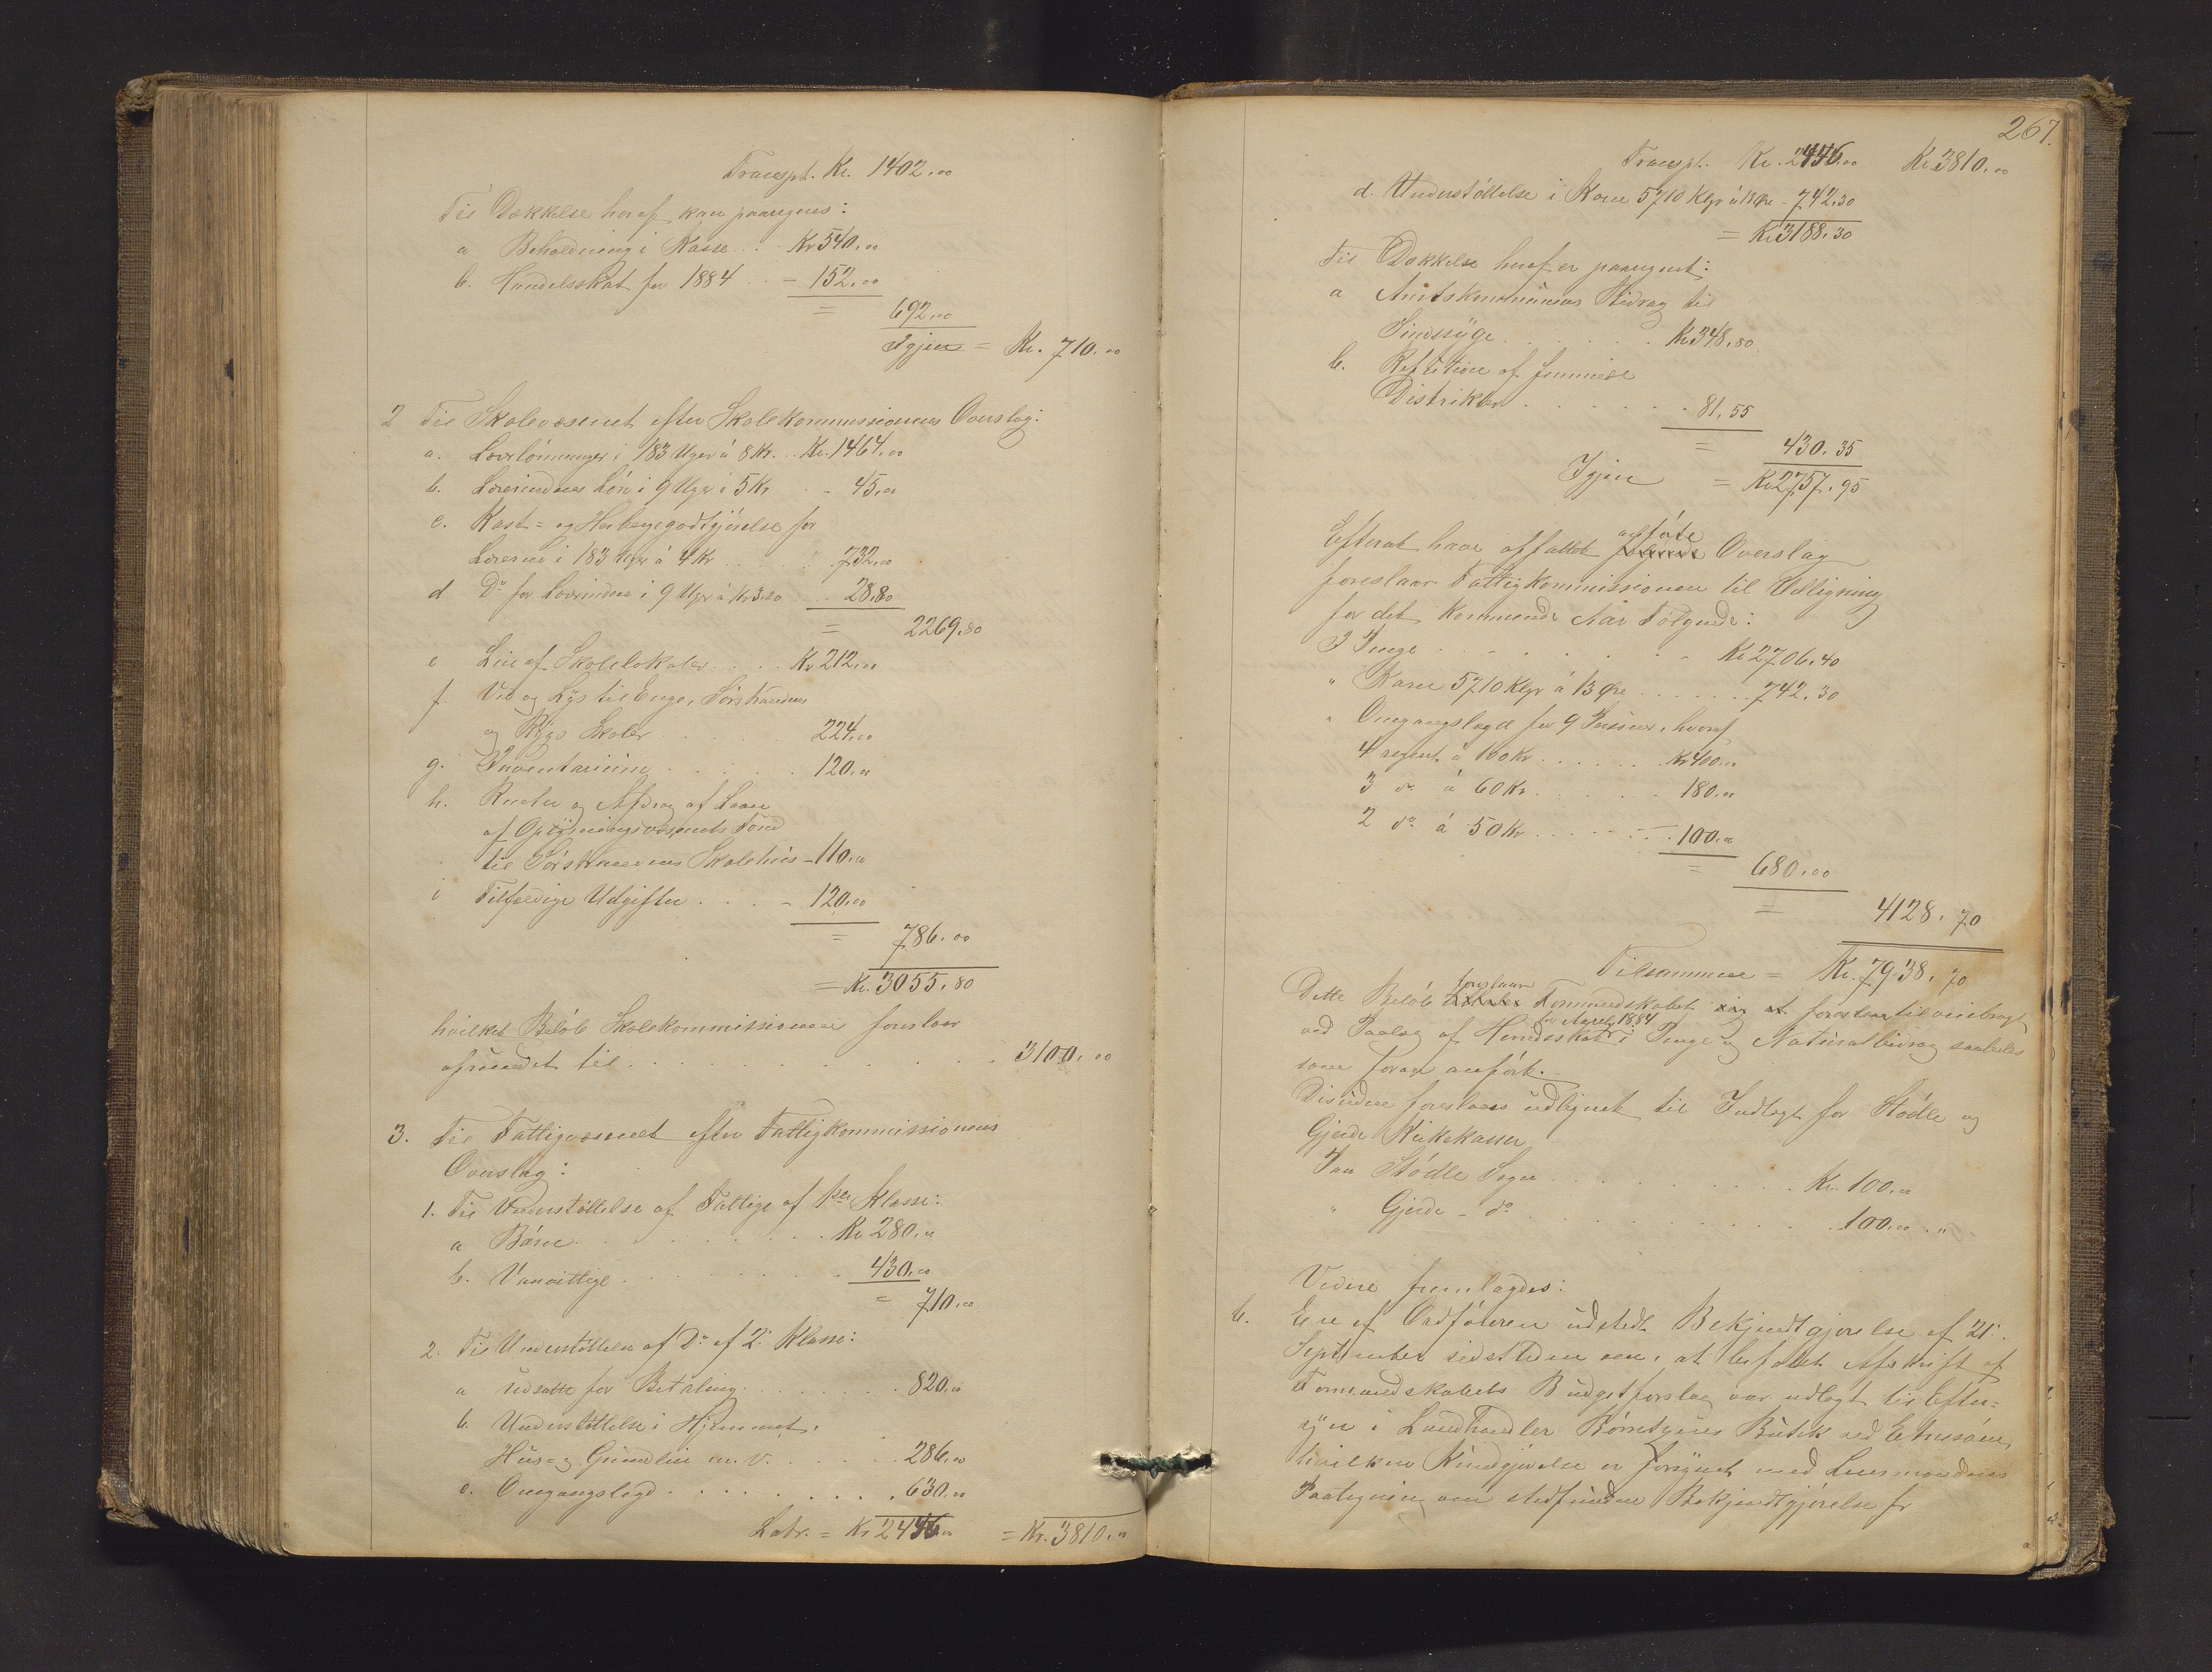 Transpt. Kr. 1402.00
Til Dækkelse heraf kan paaregnes:
a Beholdning i Kasse . . Kr 540.00
b. Handelsskat for 1884 . . - 152.00
= 692.00
Igjen = Kr. 710.00
2 Til Skolevæsenet efter Skolekommissionens Overslag:
a. Lærlønninger i 183 Uger á 8 Kr. . Kr. 1464.00
b. Lærerindens Løn i 9 Uger á 5 Kr . - 45.00
c. Kost- og Herbergegodtgjørelse for
Lærerne i 183 Uger á 4 Kr . . . 732.00
d Do for Lærerinden i 9 Uger á Kr 3.20 . . 28.80
= 2269.80
e Leie af Skolelokaler . . . . Kr 212.00
f. Ved og Lys til Enge, Sørstrandens
og Rygs Skoler . . . . . 224.00
g. Inventarium . . . . . 120.00
h. Renter og Afdrag af Laan
af Oplysningsvæsenets Fond
til Sørstrandens Skolehus - 110.00
i Tilfældige Udgifter . . . - 120.00
= 786.00
= Kr. 3055.80
hvilket Beløb Skolekommissionen foreslaar
afrundet til . . . . . . . . . . 3100.00
3. Til Fattigvæsenet efter Fattigkommissionens
Overslag:
1. Til Understøttelse af Fattige af 1ste Klasse:
a Børn . . . . . . . . . Kr 280.00
b. Vanvittige . . . . . . . . 430.00
= 710.00
2. Til Understøttelse af Do af 2. Klasse:
a udsatte for Betaling . . . . . . . 820.00
b. Understøttelse i Hjemmet,
Hus- og Grundleie m. v. . . . . . . 286.00
c. Omgangslægd . . . . . . . . . 630.00
Latr. = Kr 2446.00 = Kr. 3810.00
267.
Transpt. Kr. 2446.00 Kr. 3810.00
d. Understøttelse i Korn 5710 Klgr á 13 Øre - 742.30
= Kr 3188.30
Til Dækkelse heraf er paaregnet:
a Amtskommunens Bidrag til
Sindssyge . . . . . . Kr 348.80
b. Refusion af fremmede
Distrikter . . . . . . . 81.55
= 430.35
Igjen = Kr 2757.95
anførte
Efterat have affattet Overslag
foreslaar Fattigkommissionen til Udligning
for det kommende Aar Følgende:
I Penge . . . . . . . . - Kr 2706.40
" Korn 5710 Klgr á 13 Øre . . . . . . . 742.30
" Omgangslægd for 9 Personer, hvoraf
4 regnet á 100 Kr . . . . . . Kr 400.00
3 do á 60 Kr . . . . . . 180.00
2 do á 50 Kr . . . . . . . 100.00
= 680.00
= 4128.70
Tilsammen = Kr. 7938.70
foreslaar
Dette Beløb Formandskabet sig at tilveiebragt
for Aaret 1884
ved Paalæg af Herredsskat i Penge og Naturalbidrag saaledes
som foran anført.
Desuden foreslaaes udlignet til Indtægt for Stødle og
Gjerde Kirkekasser
Paa Stødle Sogn . . . . . . . . . . Kr. 100.00
" Gjerde - do . . . . . . . . . . 100.00 . "
Videre fremlagdes:
b. En af Ordføreren udstedt Bekjendtgjørelse af 21.
September sidstleden om, at befalet Afskrift af
Formandskabets Budgetforslag var udlagt til Efter-
syn i Landhandler Butik ved
hvilken Kundgjørelse er forsynet med Lensmandens
Paategning om stedfunden Bekjendtgjørelse fr